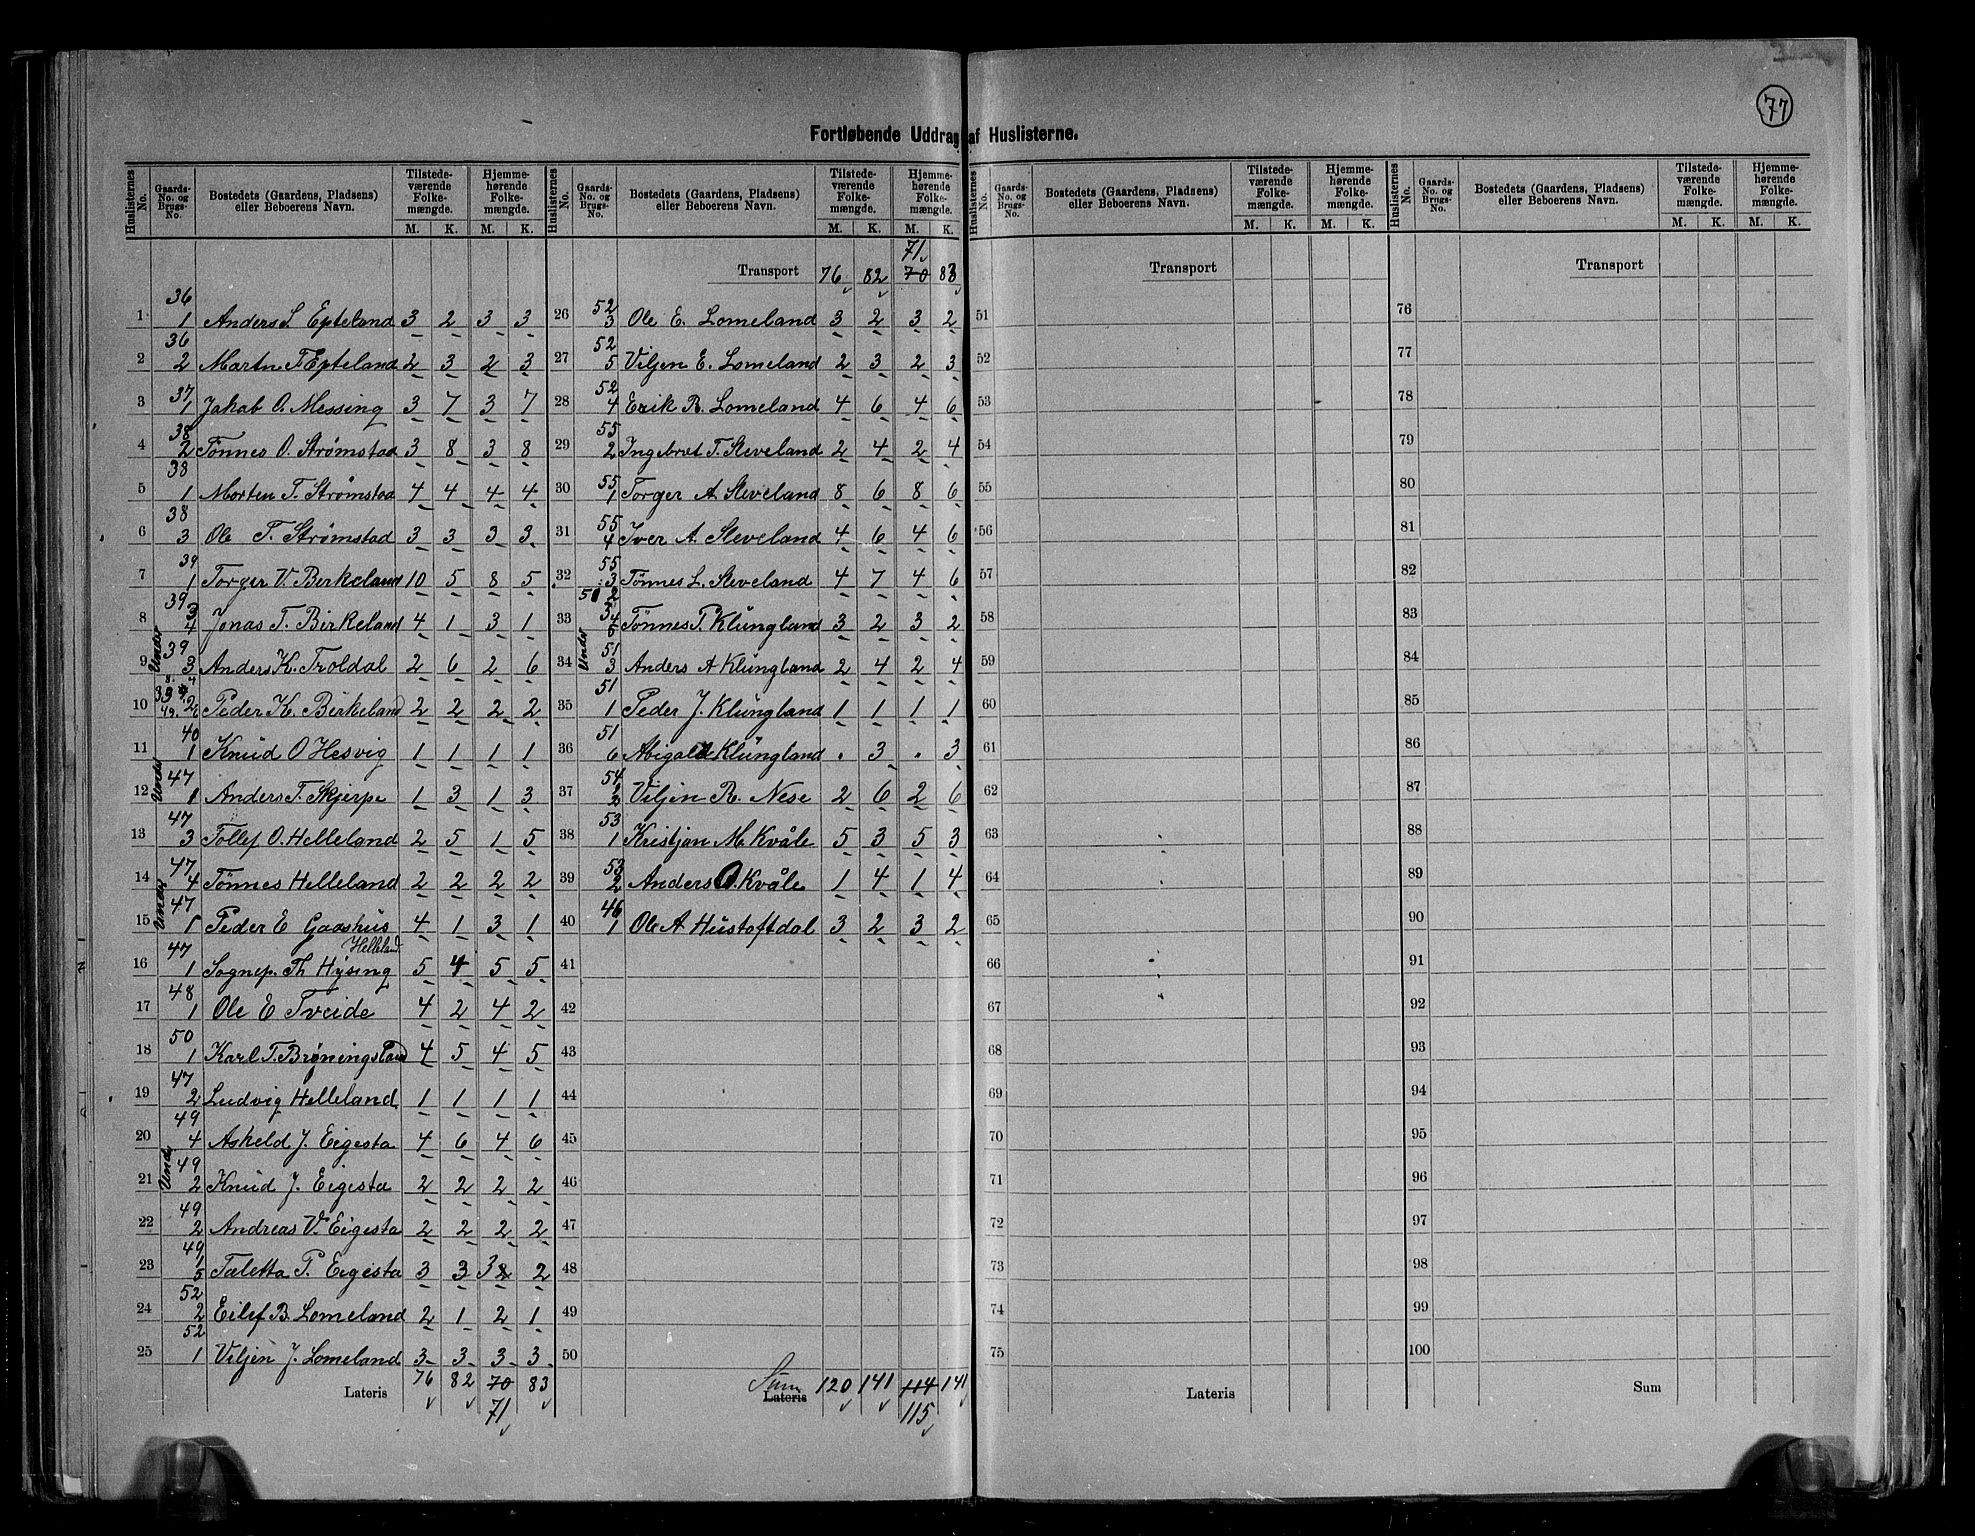 77
Fortløbende Uddrag af Huslisterne.
Huslisternes No. | Gaards-No. og Brugs-No. | Bostedets (Gaardens, Pladsens) eller Beboerens Navn. | Tilstedeværende Folkemængde. M. K. | Hjemmehørende Folkemængde. M. K.
1 | 36 1 | Anders S Epteland | 3 | 2 | 3 | 3
2 | 36 2 | Martin T Epteland | 2 | 3 | 2 | 3
3 | 37 1 | Jakob O. Messing | 3 | 7 | 3 | 7
4 | 38 2 | Tønnes O. Strømstad | 3 | 8 | 3 | 8
5 | 38 1 | Morten T. Strømstad | 4 | 4 | 4 | 4
6 | 38 3 | Ole T. Strømstad | 3 | 3 | 3 | 3
7 | 39 1 | Torger V. Birkeland | 10 | 5 | 8 | 5
8 | 39 3 4 | Jonas T. Birkeland | 4 | 1 | 3 | 1
9 | Under 39 3 | Anders K. Troldal | 2 | 6 | 2 | 6
10 | 39 2 | Peder K. Birkeland | 2 | 2 | 2 | 2
11 | 40 1 | Knud O Hesvig | 1 | 1 | 1 | 1
12 | Under 47 1 | Anders T. Skjerpe | 1 | 3 | 1 | 3
13 | 47 3 | Tollef O. Helleland | 2 | 5 | 1 | 5
14 | 47 4 | Tønnes Helleland | 2 | 2 | 2 | 2
15 | Under 47 1 | Peder E Gaashus | 4 | 1 | 3 | 1
16 | 47 1 | Sognep. Th Hysing Helleland | 5 | 4 | 5 | 5
17 | 48 1 | Ole E Tveide | 4 | 2 | 4 | 2
18 | 50 1 | Karl T. Brøningsland | 4 | 5 | 4 | 5
19 | 47 2 | Ludvig Helleland | 1 | 1 | 1 | 1
20 | 49 4 | Askeld J. Eigesta | 4 | 6 | 4 | 6
21 | Under 49 2 | Knud J. Eigesta | 2 | 2 | 2 | 2
22 | 49 2 | Andreas V. Eigesta | 2 | 2 | 2 | 2
23 | 49 1 5 | Taletta P. Eigesta | 3 | 3 | 3 | 2
24 | 52 2 | Eilef B. Lomeland | 2 | 1 | 2 | 1
25 | 52 1 | Viljen J. Lomeland | 3 | 3 | 3 | 3
Lateris | 76 | 82 | 70 | 83
71
Huslisternes No. | Gaards-No. og Brugs-No. | Bostedets (Gaardens, Pladsens) eller Beboerens Navn. | Tilstedeværende Folkemængde. M. K. | Hjemmehørende Folkemængde. M. K.
71
Transport | 76 | 82 | 70 | 83
26 | 52 3 | Ole E. Lomeland | 3 | 2 | 3 | 2
27 | 52 5 | Viljen E. Lomeland | 2 | 3 | 2 | 3
28 | 52 4 | Erik R. Lomeland | 4 | 6 | 4 | 6
29 | 55 2 | Ingebret T. Sleveland | 2 | 4 | 2 | 4
30 | 55 1 | Torger A Sleveland | 8 | 6 | 8 | 6
31 | 55 4 | Iver A. Sleveland | 4 | 6 | 4 | 6
32 | 55 3 | Tønnes L. Sleveland | 4 | 7 | 4 | 6
33 | 51 2 3 4 5 | Tønnes P. Klungland | 3 | 2 | 3 | 2
34 | Under 51 3 | Anders A Klungland | 2 | 4 | 2 | 4
35 | 51 1 | Peder J. Klungland | 1 | 1 | 1 | 1
36 | 51 6 | Abigael Klungland | " | 3 | " | 3
37 | 54 1 2 | Viljen R. Nese | 2 | 6 | 2 | 6
38 | 53 1 | Kristjan M. Kvåle | 5 | 3 | 5 | 3
39 | 53 2 | Anders O. Kvåle | 1 | 4 | 1 | 4
40 | 46 1 | Ole A Hustoftdal | 3 | 2 | 3 | 2
41
42
43
44
45
46
47
48
49
50
Sum Lateris | 120 | 141 | 114 | 141
115
Huslisternes No. | Gaards-No. og Brugs-No. | Bostedets (Gaardens, Pladsens) eller Beboerens Navn. | Tilstedeværende Folkemængde. M. K. | Hjemmehørende Folkemængde. M. K.
Transport
51
52
53
54
55
56
57
58
59
60
61
62
63
64
65
66
67
68
69
70
71
72
73
74
75
Lateris
Huslisternes No. | Gaards-No. og Brugs-No. | Bostedets (Gaardens, Pladsens) eller Beboerens Navn. | Tilstedeværende Folkemængde. M. K. | Hjemmehørende Folkemængde. M. K.
Transport
76
77
78
79
80
81
82
83
84
85
86
87
88
89
90
91
92
93
94
95
96
97
98
99
100
Sum